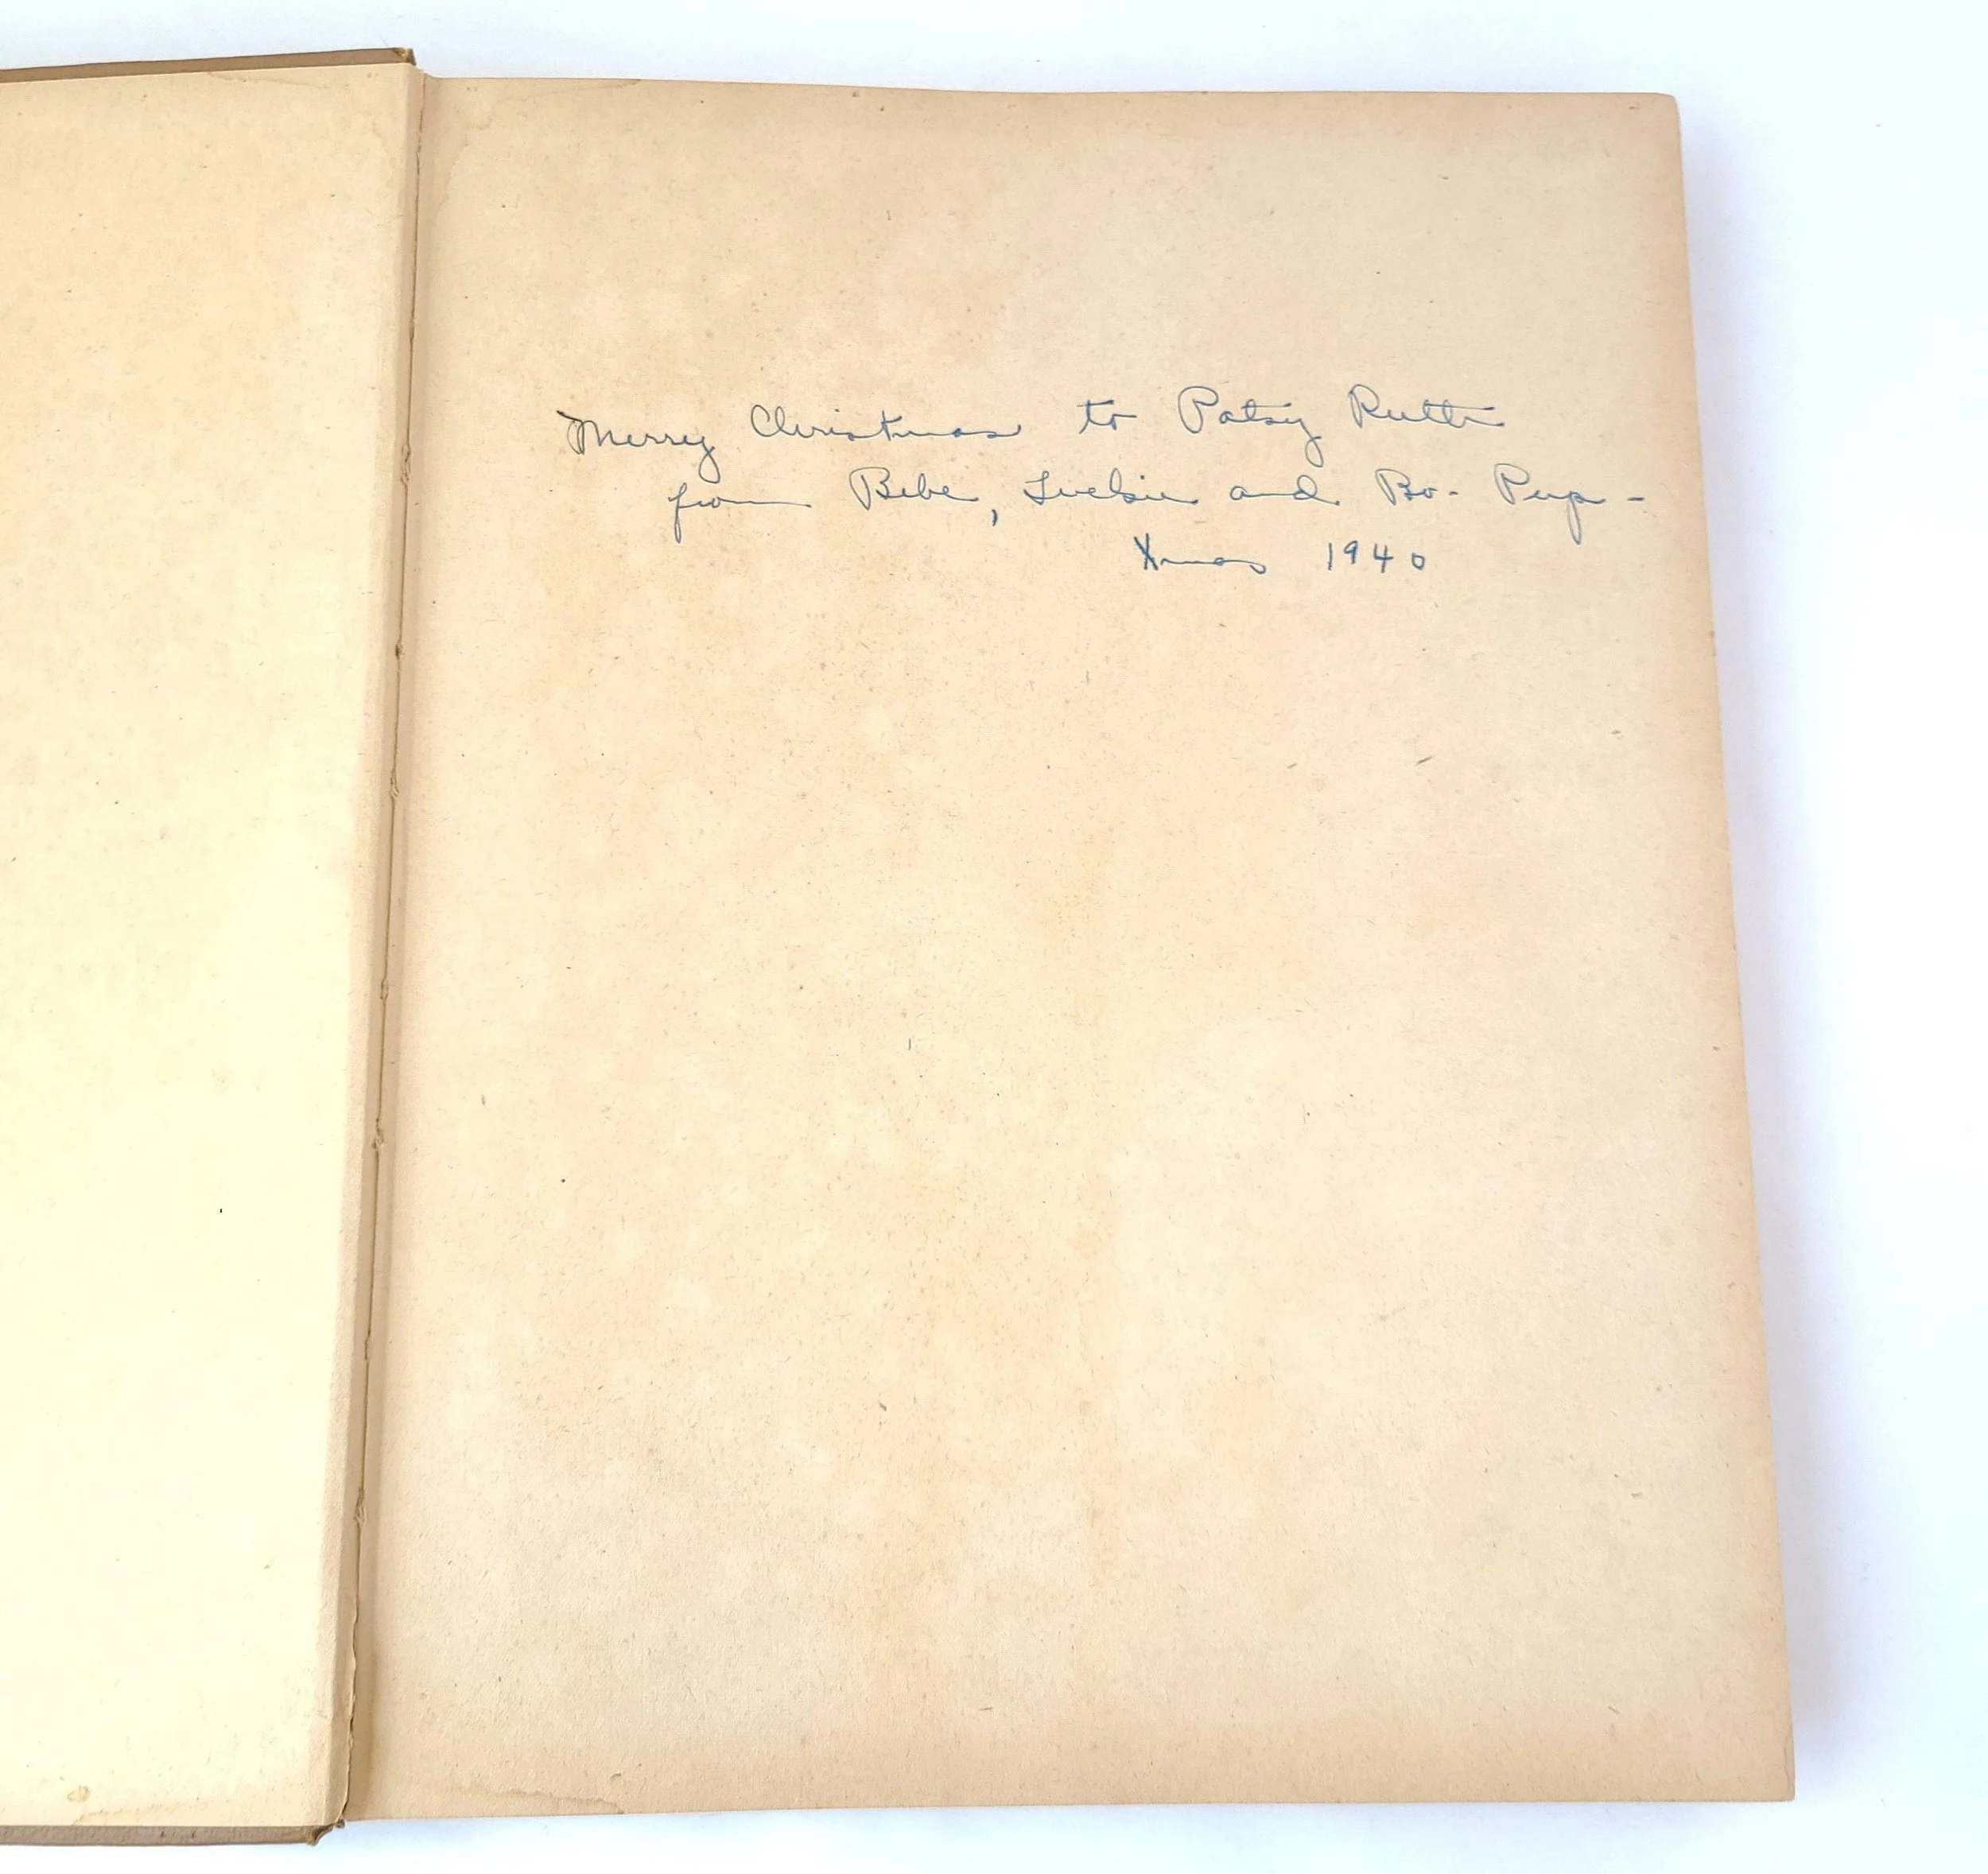 Merry Christmas to Patsy Ruth
from Bebe, and Bo- Peep -
Xmas 1940